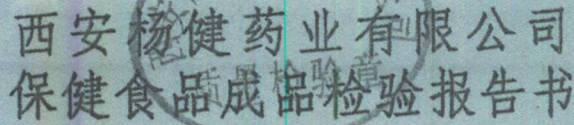 西安杨健药业有限公司
保健食品成品检验报告书
质量检验章